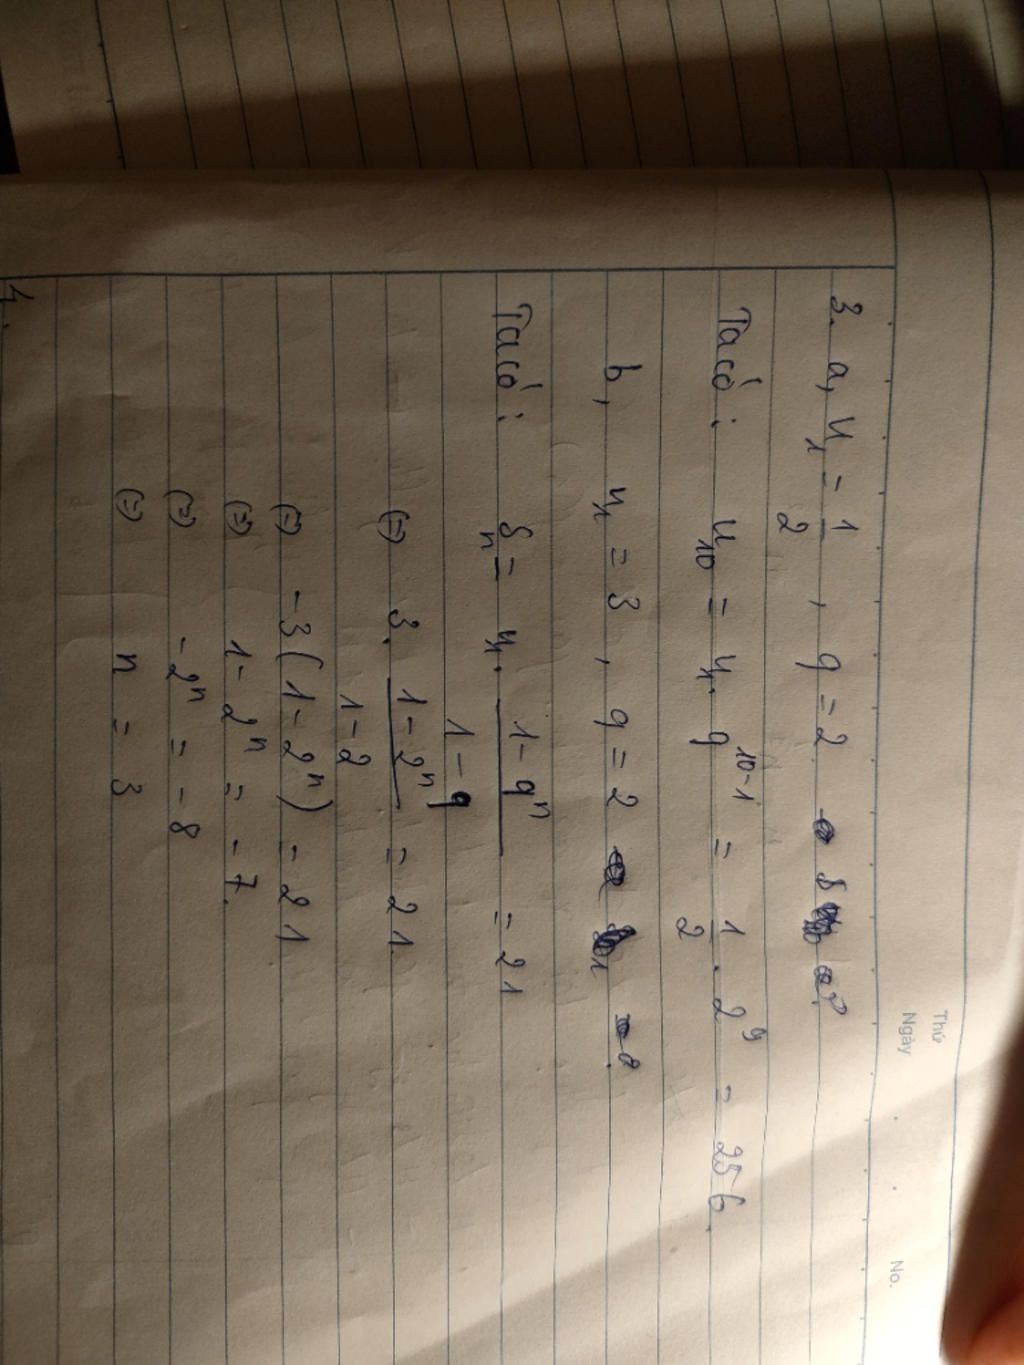 Thứ
Ngày
No.
3. a, u₁ = 1/2 , q = 2
Ta có: u₁₀ = u₁. q¹⁰⁻¹ = 1/2 . 2⁹ = 256.
b, u₁ = 3 , q = 2
Ta có: Sₙ = u₁. (1 - qⁿ)/(1 - q) = 21
(=) 3. (1 - 2ⁿ)/(1 - 2) = 21.
(=) -3(1 - 2ⁿ) = 21
(=) 1 - 2ⁿ = -7.
(=) -2ⁿ = -8
(=) n = 3